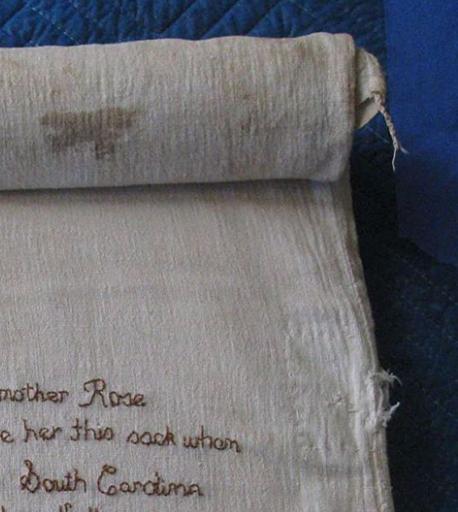 mother Rose
e her this sack when
South Carolina